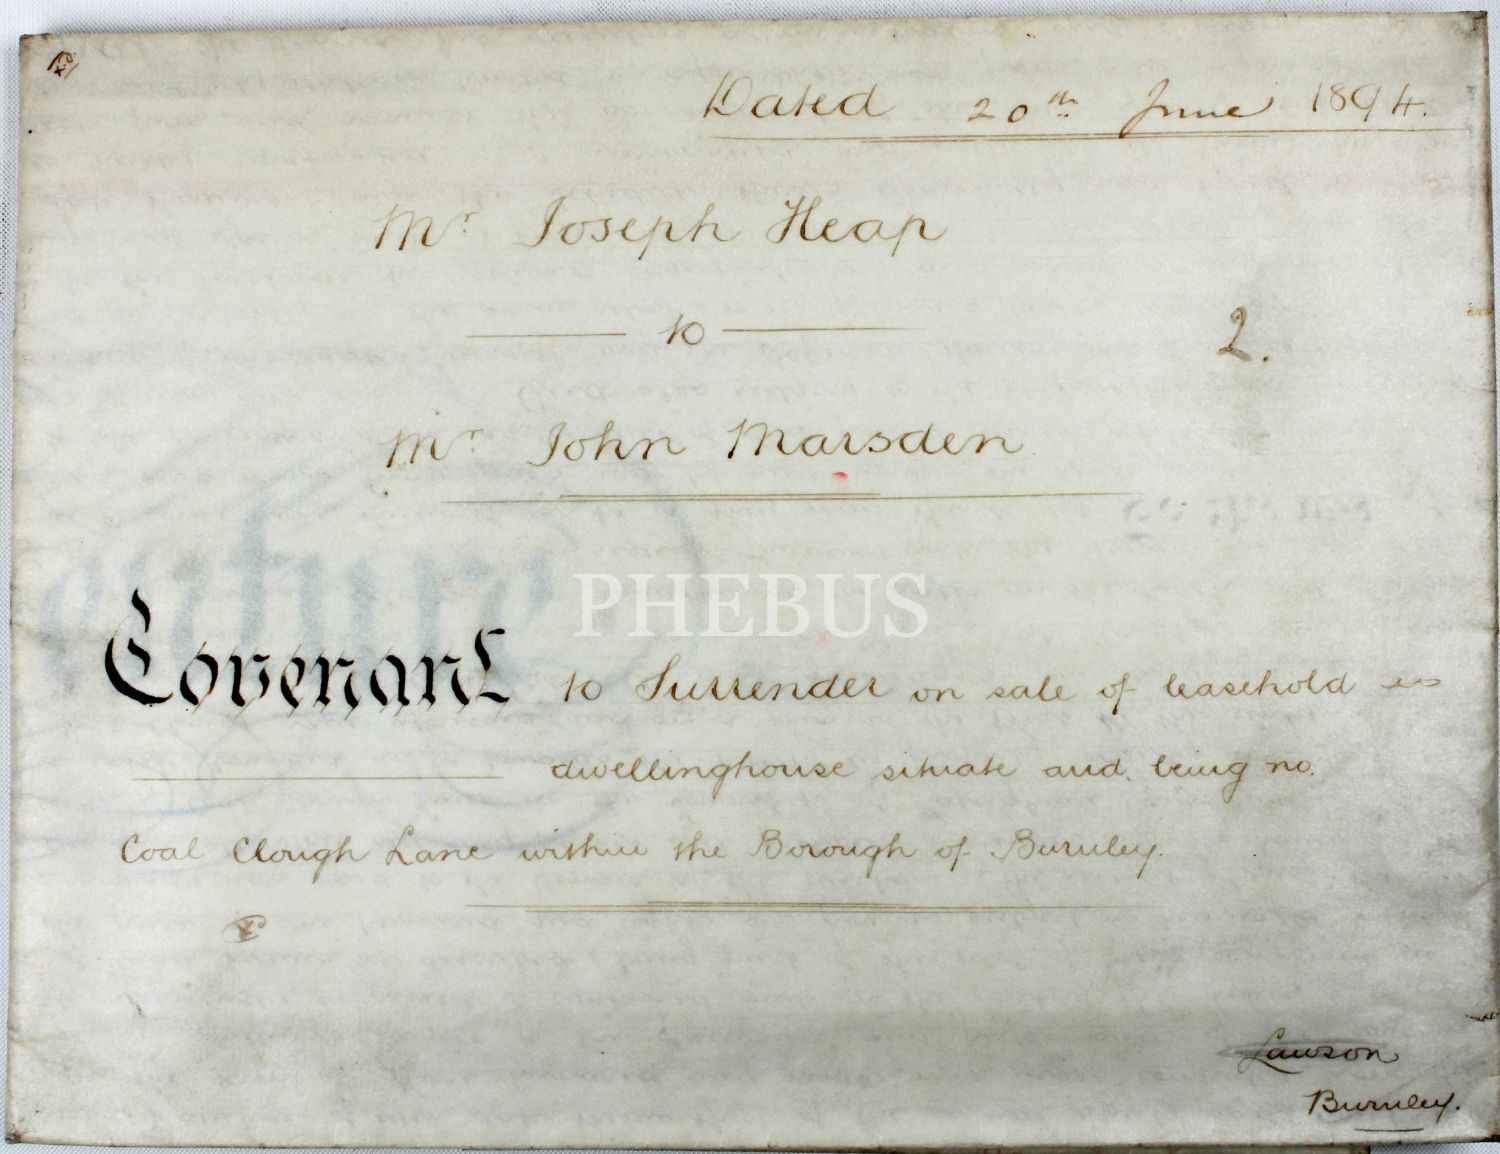 Dated 20th June 1894.
Mr. Joseph Heap
to
2.
Mr. John Marsden
PHEBUS
Covenant to Surrender on sale of leasehold
dwellinghouse situate and being no.
Coal Clough Lane within the Borough of Burnley.
Lawson
Burnley.